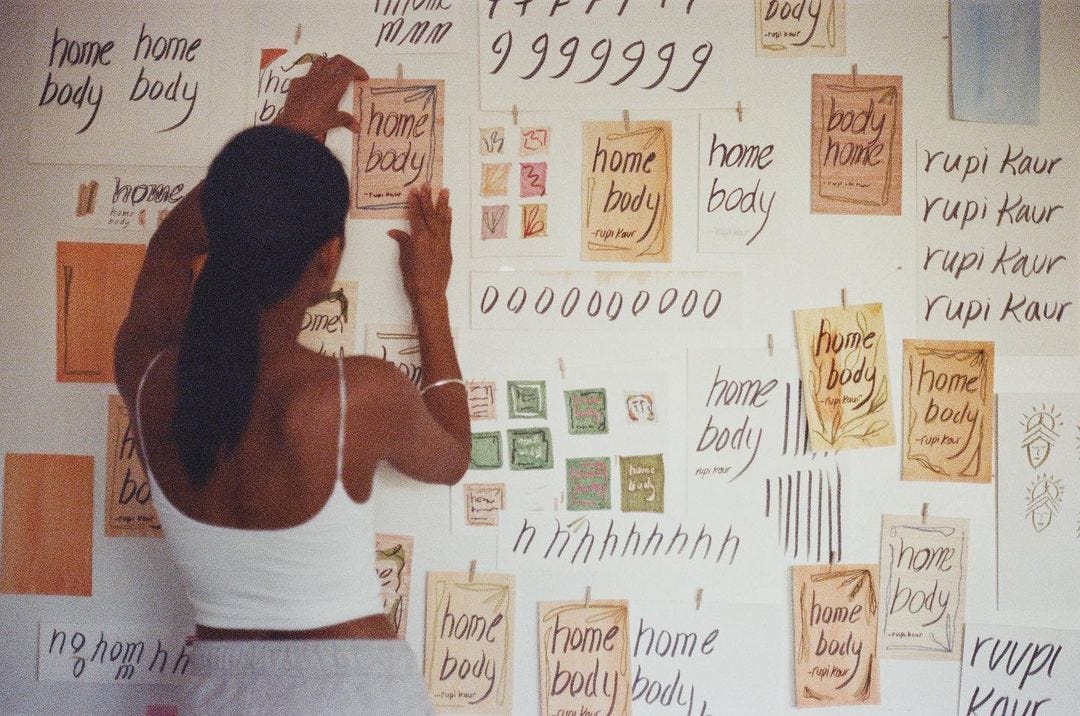 home home
body body
home
mnn
9999999
body
-rupi kaur
home
body
-rupi kaur
home
body
-rupi kaur
home
body
body
home
-rupi kaur
rupi kaur
rupi kaur
rupi kaur
rupi kaur
home
home
body
0000000000
home
body
rupi kaur
home
body
-rupi kaur
home
body
-rupi kaur
home
body
hhhhhhhhh
home
body
-rupi kaur
home
body
-rupi kaur
home
body
-rupi kaur
home
body
home
body
-rupi kaur
rupi
kaur